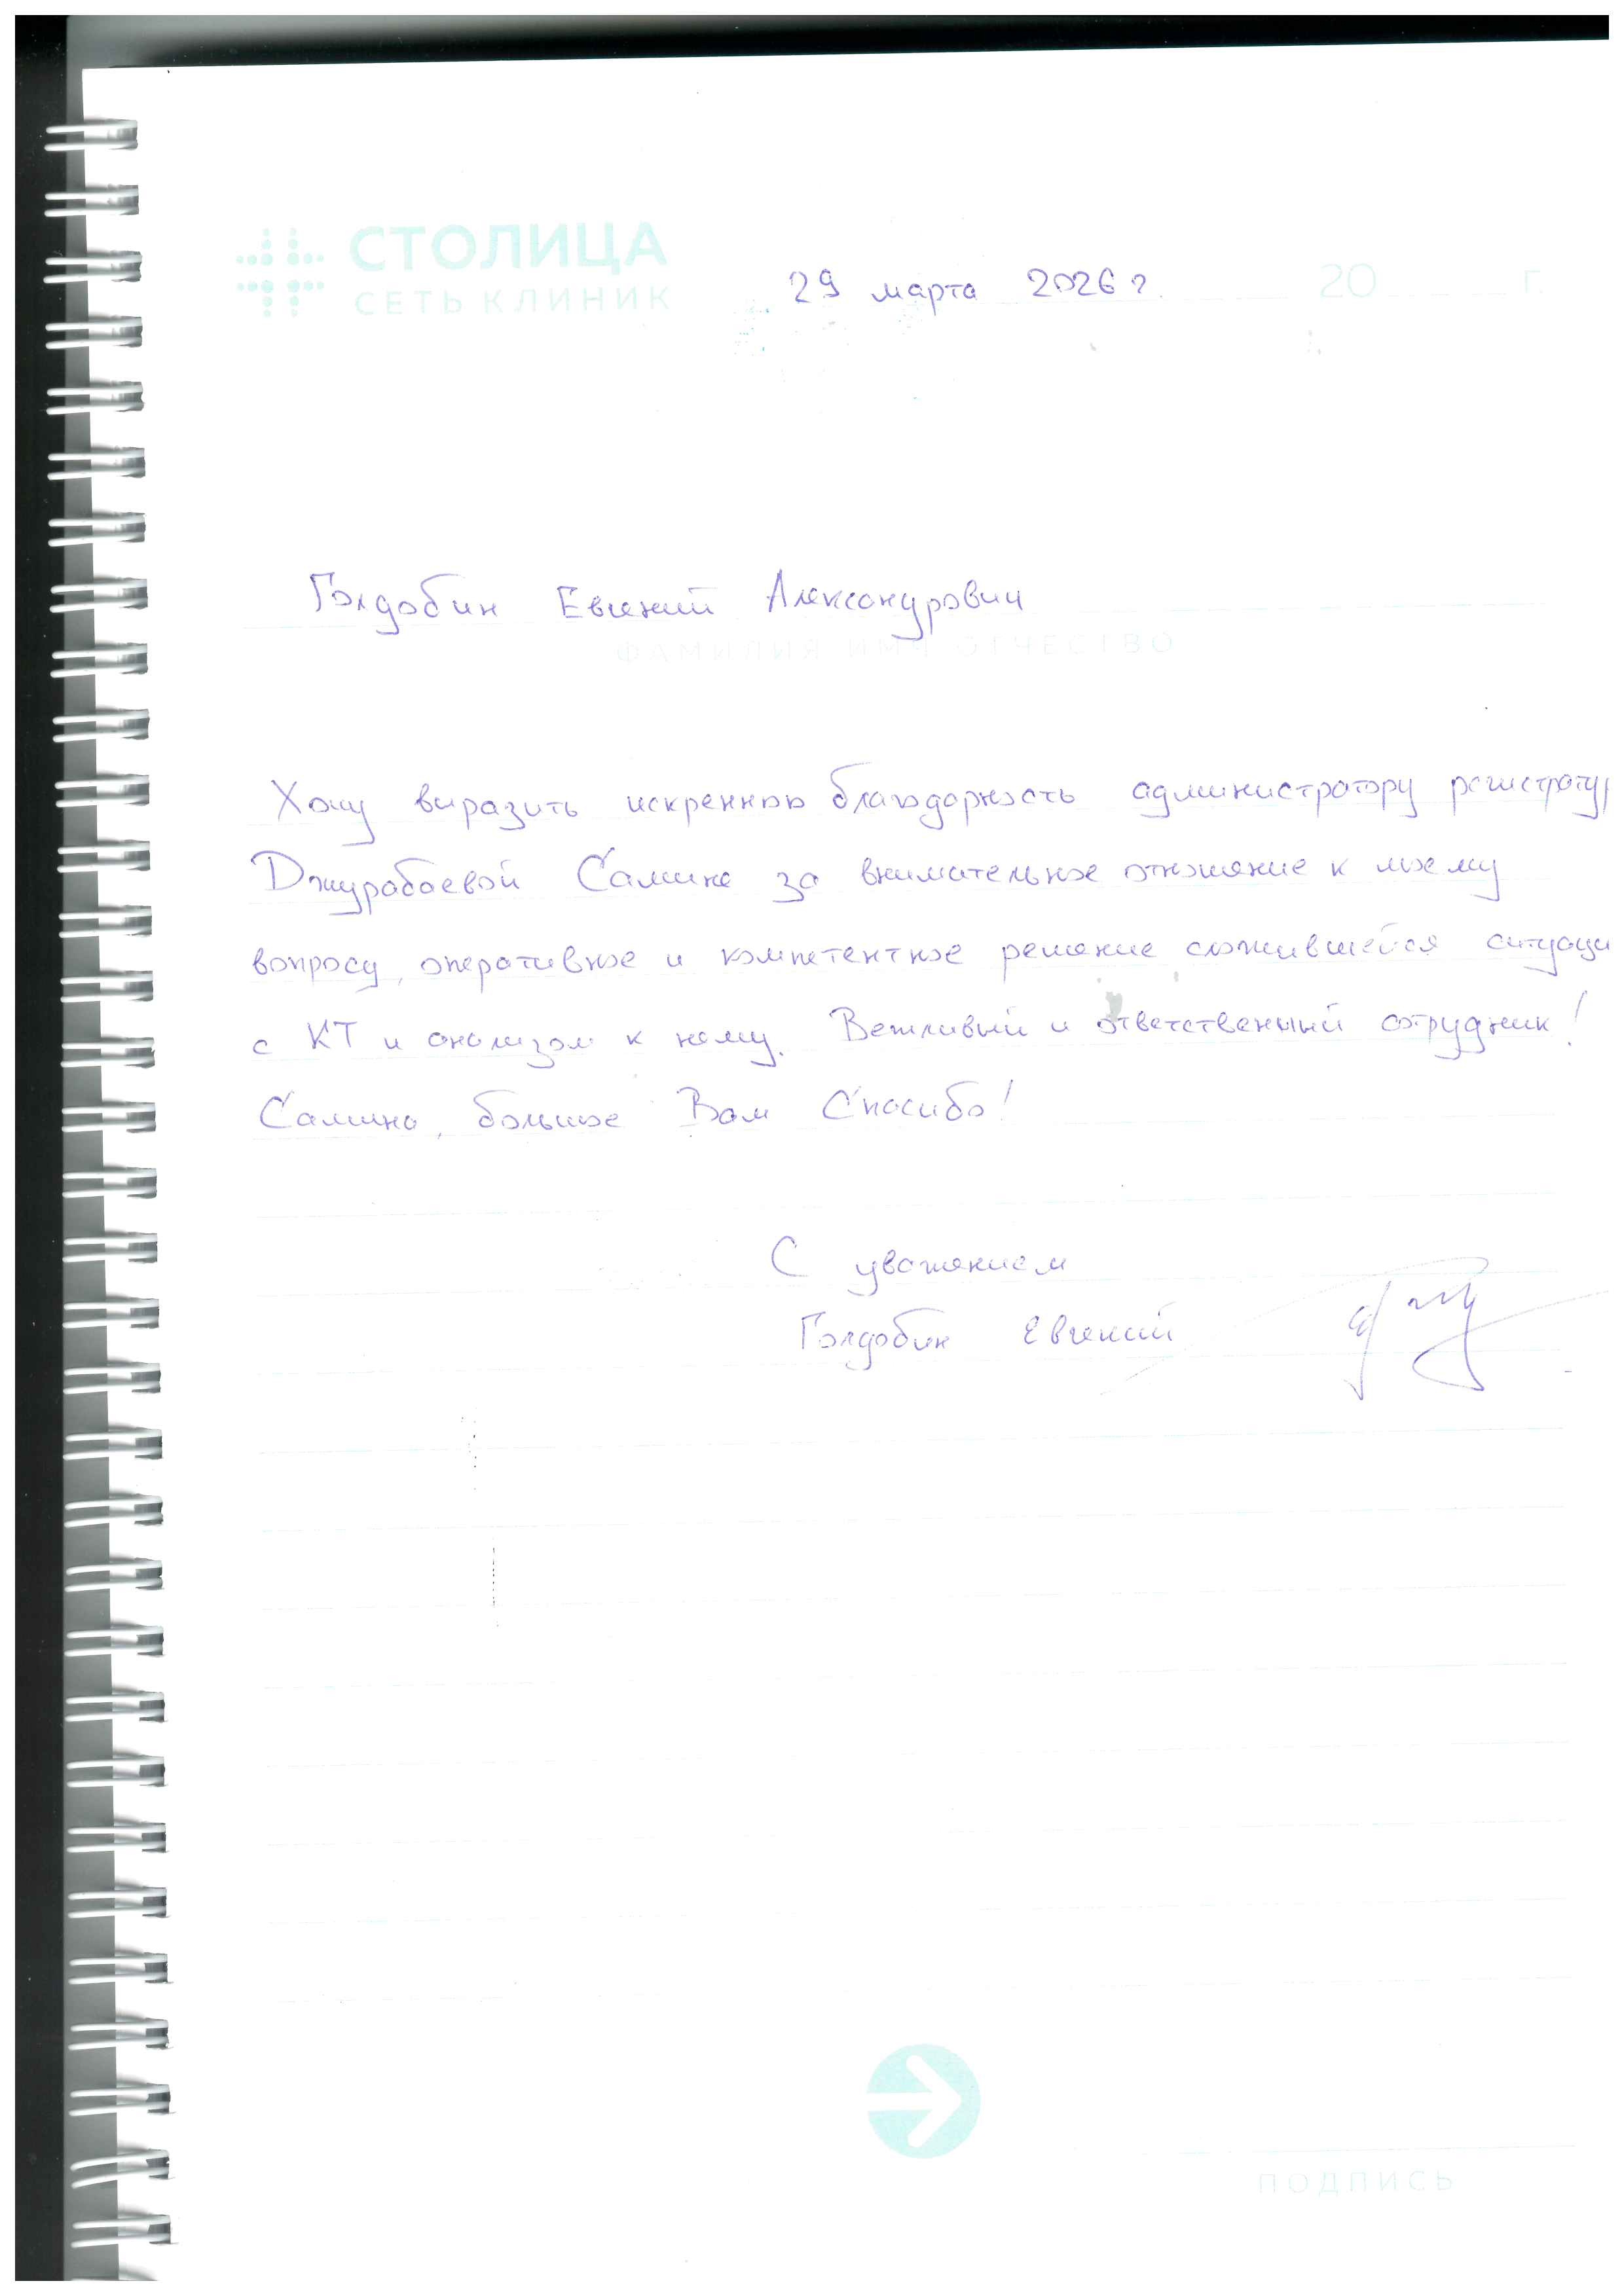 СТОЛИЦА
СЕТЬ КЛИНИК
29 марта 2026 г. 20 г.
Голдобин Евгений Александрович
ФАМИЛИЯ ИМЯ ОТЧЕСТВО
Хочу выразить искреннюю благодарность администратору регистратур
Джурабаевой Самине за внимательное отношение к моему
вопросу, оперативное и компетентное решение сложившейся ситуаци
с КТ и анализом к нему. Вежливый и ответственный сотрудник!
Самина, большое Вам Спасибо!
С уважением
Голдобин Евгений
ПОДПИСЬ